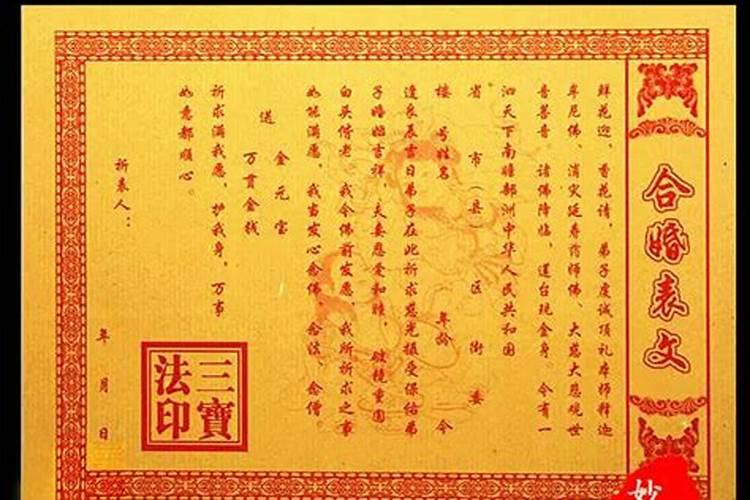 合婚表文
鲜花迎，香花请，弟子虔诚顶礼本师释迦
牟尼佛、消灾延寿药师佛、大慈大悲观世
音善音。诸佛降临，莲台现金身。今有一
泗天下南瞻部洲中华人民共和国
省 市（县 区 街 委
楼 号姓名 年龄 今
逢良辰吉日弟子在此祈求慈光摄受保佑弟
子婚姻吉祥，夫妻恩爱和睦，破镜重圆
白头偕老。我今佛前发愿，我所祈求之事
如能满愿，我当发心念佛、念法、念僧。
送 金元宝
万贯金钱
祈求满我愿，护我身，万事
如意都顺心。
祈表人：
年 月 日
三寶
法印
妙